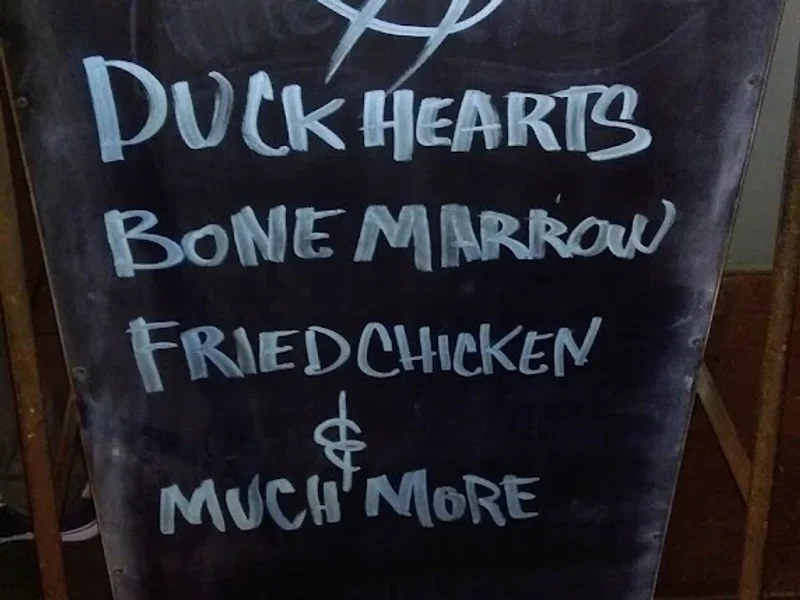 DUCK HEARTS
BONE MARROW
FRIED CHICKEN
&
MUCH MORE